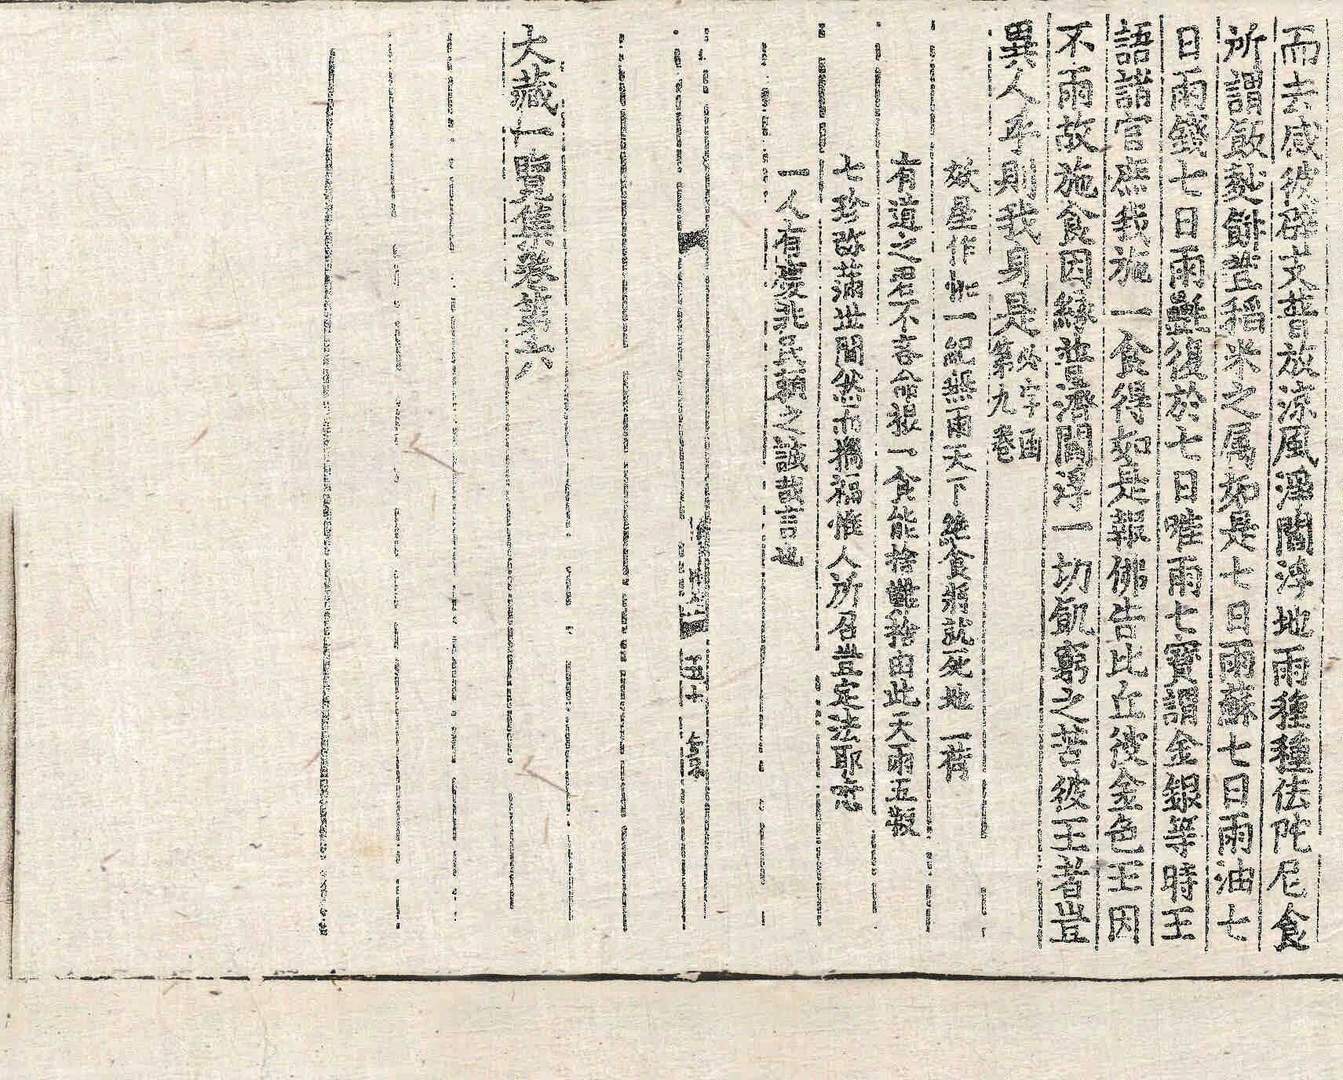 而去感彼辟支昔放涼風淫閻浮地雨種種佉陀尼食
所謂飯麨餅豆稻米之属如是七日雨蘇七日雨油七
日雨錢七日雨㲲復於七日唯雨七寶謂金銀等時王
語諸官庶我施一食得如是報佛告比丘彼金色王因
不雨故施食因緣普濟閻浮一切飢窮之苦彼王者豈
異人乎則我身是必字函
第九卷
妖星作怪一紀無雨天下絕食將就死地一荷
有道之君不吝命根一食能捨誰捨由此天雨五穀
七珍弥滿世間然而禍福惟人所召豈定法耶
一人有慶兆民賴之誠哉言也
五十
大藏一覽集卷第六